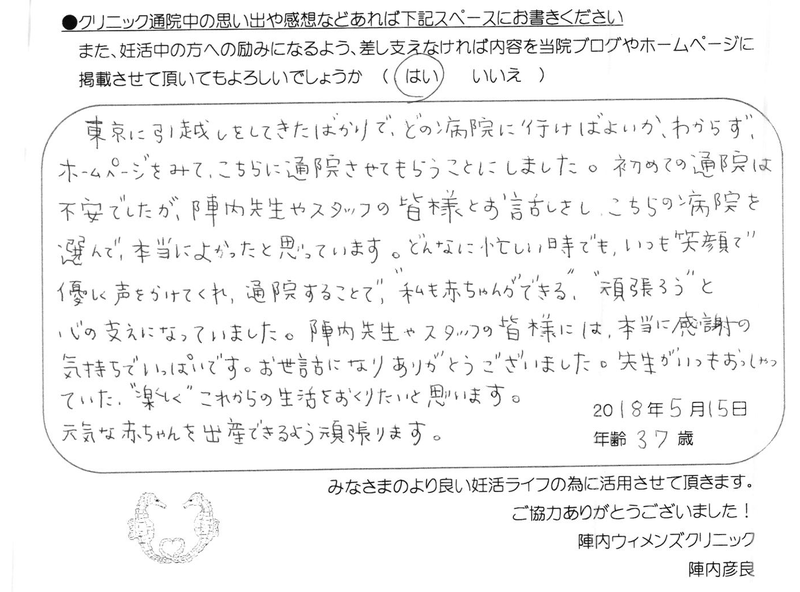 ●クリニック通院中の思い出や感想などあれば下記スペースにお書きください
また、妊活中の方への励みになるよう、差し支えなければ内容を当院ブログやホームページに
掲載させて頂いてもよろしいでしょうか （ はい いいえ ）
東京に引越しをしてきたばかりで、どの病院に行けばよいか、わからず、
ホームページをみて、こちらに通院させてもらうことにしました。初めての通院は
不安でしたが、陣内先生やスタッフの皆様とお話しをし、こちらの病院を
選んで、本当によかったと思っています。どんなに忙しい時でも、いつも笑顔で
優しく声をかけてくれ、通院することで、"私も赤ちゃんができる"、"頑張ろう"と
心の支えになっていました。陣内先生やスタッフの皆様には、本当に感謝の
気持ちでいっぱいです。お世話になりありがとうございました。先生がいつもおっしゃっ
ていた、"楽しく"これからの生活をおくりたいと思います。
元気な赤ちゃんを出産できるよう頑張ります。
2018年5月15日
年齢 37歳
みなさまのより良い妊活ライフの為に活用させて頂きます。
ご協力ありがとうございました！
陣内ウィメンズクリニック
陣内彦良